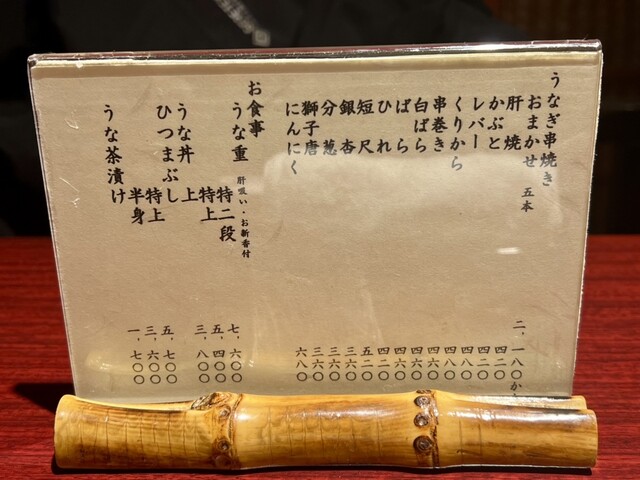 うなぎ串焼き
おまかせ 五本 二、一八〇か
肝焼 四二〇
かぶと 四二〇
レバー 四二〇
くりから 四八〇
串巻き 四六〇
白ばら 四六〇
ばら 四六〇
ひれ 四二〇
短尺 五二〇
銀杏 三六〇
分葱 三六〇
獅子唐 三六〇
にんにく 六八〇
お食事
うな重 肝吸い・お新香付
特二段 七、六〇〇
特上 五、四〇〇
うな丼 上 三、八〇〇
ひつまぶし 特上 五、七〇〇
半身 三、六〇〇
うな茶漬け 一、七〇〇